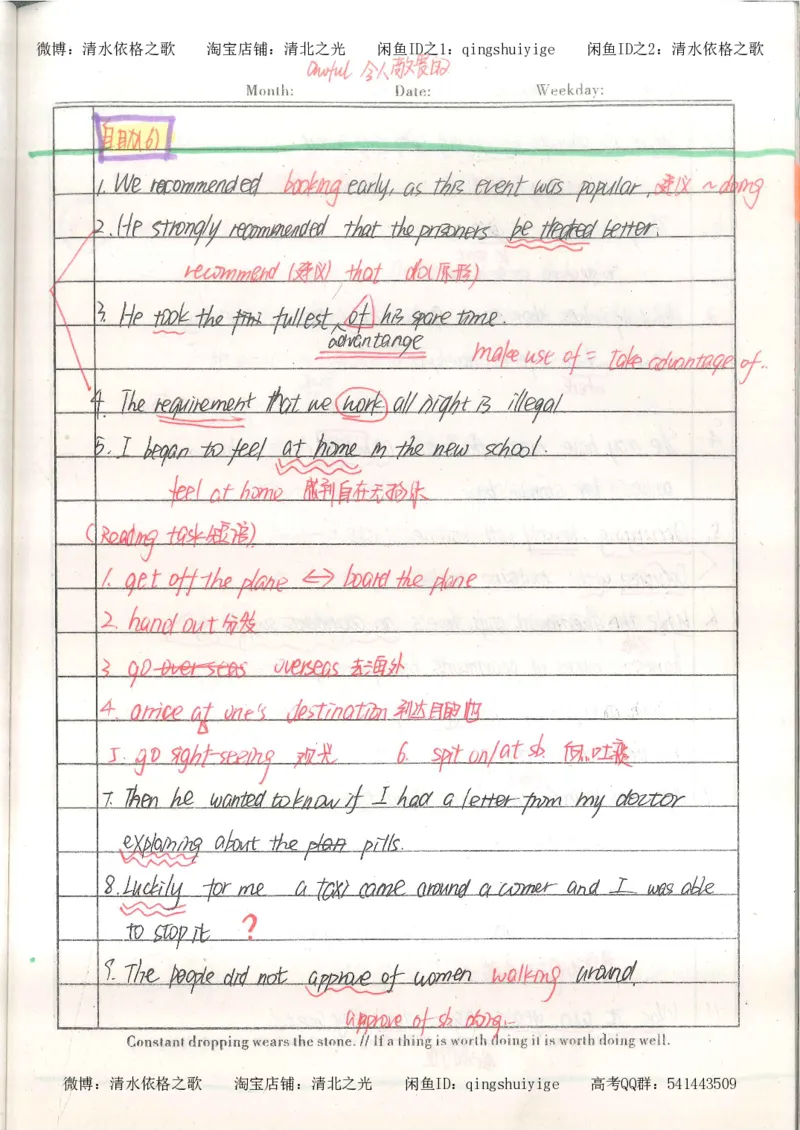 微博：清水依格之歌 淘宝店铺：清北之光 闲鱼ID之1：qingshuiyige 闲鱼ID之2：清水依格之歌
awful 令人敬畏的
Month: Date: Weekday:
自助(6)
1. We recommended booking early, as this event was popular. 建议 ~ doing
2. He strongly recommended that the prisoners be treated better.
recommend (建议) that do(原形)
3. He took the fullest of his spare time.
advantange
make use of = take advantage of..
4. The requirement that we work all night is illegal
5. I began to feel at home in the new school.
feel at home 感到自在无拘束
(Reading task短语)
1. get off the plane <-> board the plane
2. hand out 分发
3 go over seas overseas 去海外
4. arrice at one's destination 到达目的地
5. go sight-seeing 观光 6. spit on/at sb 向..吐痰
7. Then he wanted to know if I had a letter from my doctor
explaining about the plan pills.
8. Luckily for me a taxi came around a corner and I was able
to stop it ?
9. The people did not approve of women walking around.
approve of sb doing..
Constant dropping wears the stone. // If a thing is worth doing it is worth doing well.
微博：清水依格之歌 淘宝店铺：清北之光 闲鱼ID：qingshuiyige 高考QQ群：541443509